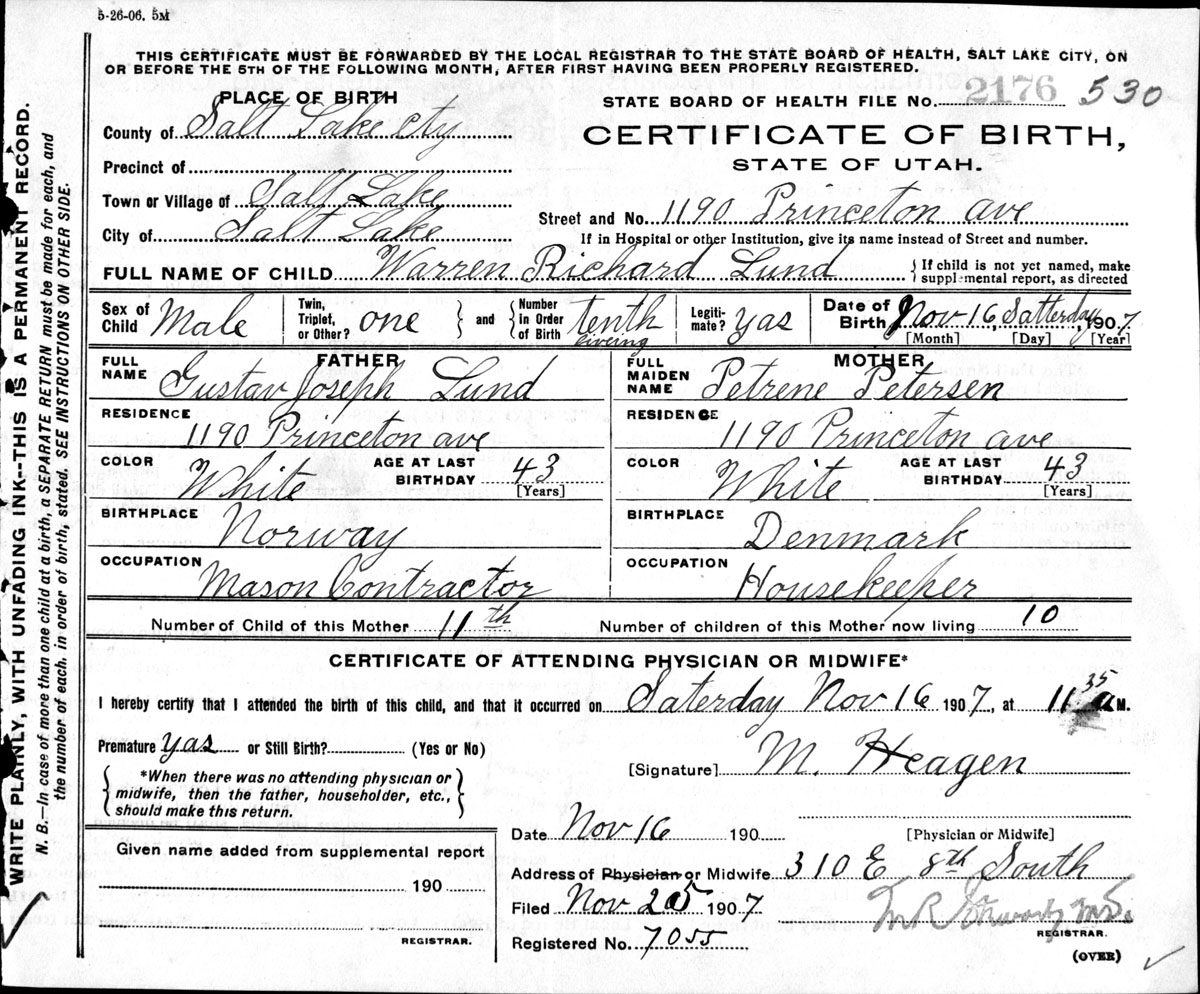 5-26-06. 5M
THIS CERTIFICATE MUST BE FORWARDED BY THE LOCAL REGISTRAR TO THE STATE BOARD OF HEALTH, SALT LAKE CITY, ON
OR BEFORE THE 5TH OF THE FOLLOWING MONTH, AFTER FIRST HAVING BEEN PROPERLY REGISTERED.
WRITE PLAINLY, WITH UNFADING INK--THIS IS A PERMANENT RECORD.
N. B.—In case of more than one child at a birth, a SEPARATE RETURN must be made for each, and
the number of each, in order of birth, stated. SEE INSTRUCTIONS ON OTHER SIDE.
PLACE OF BIRTH
County of Salt Lake cty
Precinct of
Town or Village of Salt Lake
City of Salt Lake
STATE BOARD OF HEALTH FILE No. 2176 530
CERTIFICATE OF BIRTH,
STATE OF UTAH.
Street and No. 1190 Princeton ave
If in Hospital or other Institution, give its name instead of Street and number.
FULL NAME OF CHILD Warren Richard Lund { If child is not yet named, make
supplemental report, as directed
Sex of Child Male
Twin, Triplet, or Other? one } and { Number in Order of Birth tenth
Legitimate? yas
Date of Birth Nov 16, Satterday 1907
[Month] [Day] [Year]
FATHER
FULL NAME Gustav Joseph Lund
RESIDENCE 1190 Princeton ave
COLOR White AGE AT LAST BIRTHDAY 43
[Years]
BIRTHPLACE Norway
OCCUPATION Mason Contractor
MOTHER
FULL MAIDEN NAME Petrene Petersen
RESIDENCE 1190 Princeton ave
COLOR White AGE AT LAST BIRTHDAY 43
[Years]
BIRTHPLACE Denmark
OCCUPATION Housekeeper
Number of Child of this Mother 11th Number of children of this Mother now living 10
CERTIFICATE OF ATTENDING PHYSICIAN OR MIDWIFE*
I hereby certify that I attended the birth of this child, and that it occurred on Saterday Nov 16 1907, at 11 35 a M.
Premature yas or Still Birth? (Yes or No)
[Signature] M. Heagen
{ *When there was no attending physician or
midwife, then the father, householder, etc.,
should make this return. }
Date Nov 16 190 [Physician or Midwife]
Address of Physician or Midwife 310 E 8th South
Filed Nov 25 1907
REGISTRAR.
Registered No. 7055
(OVER)
Given name added from supplemental report
190
REGISTRAR.